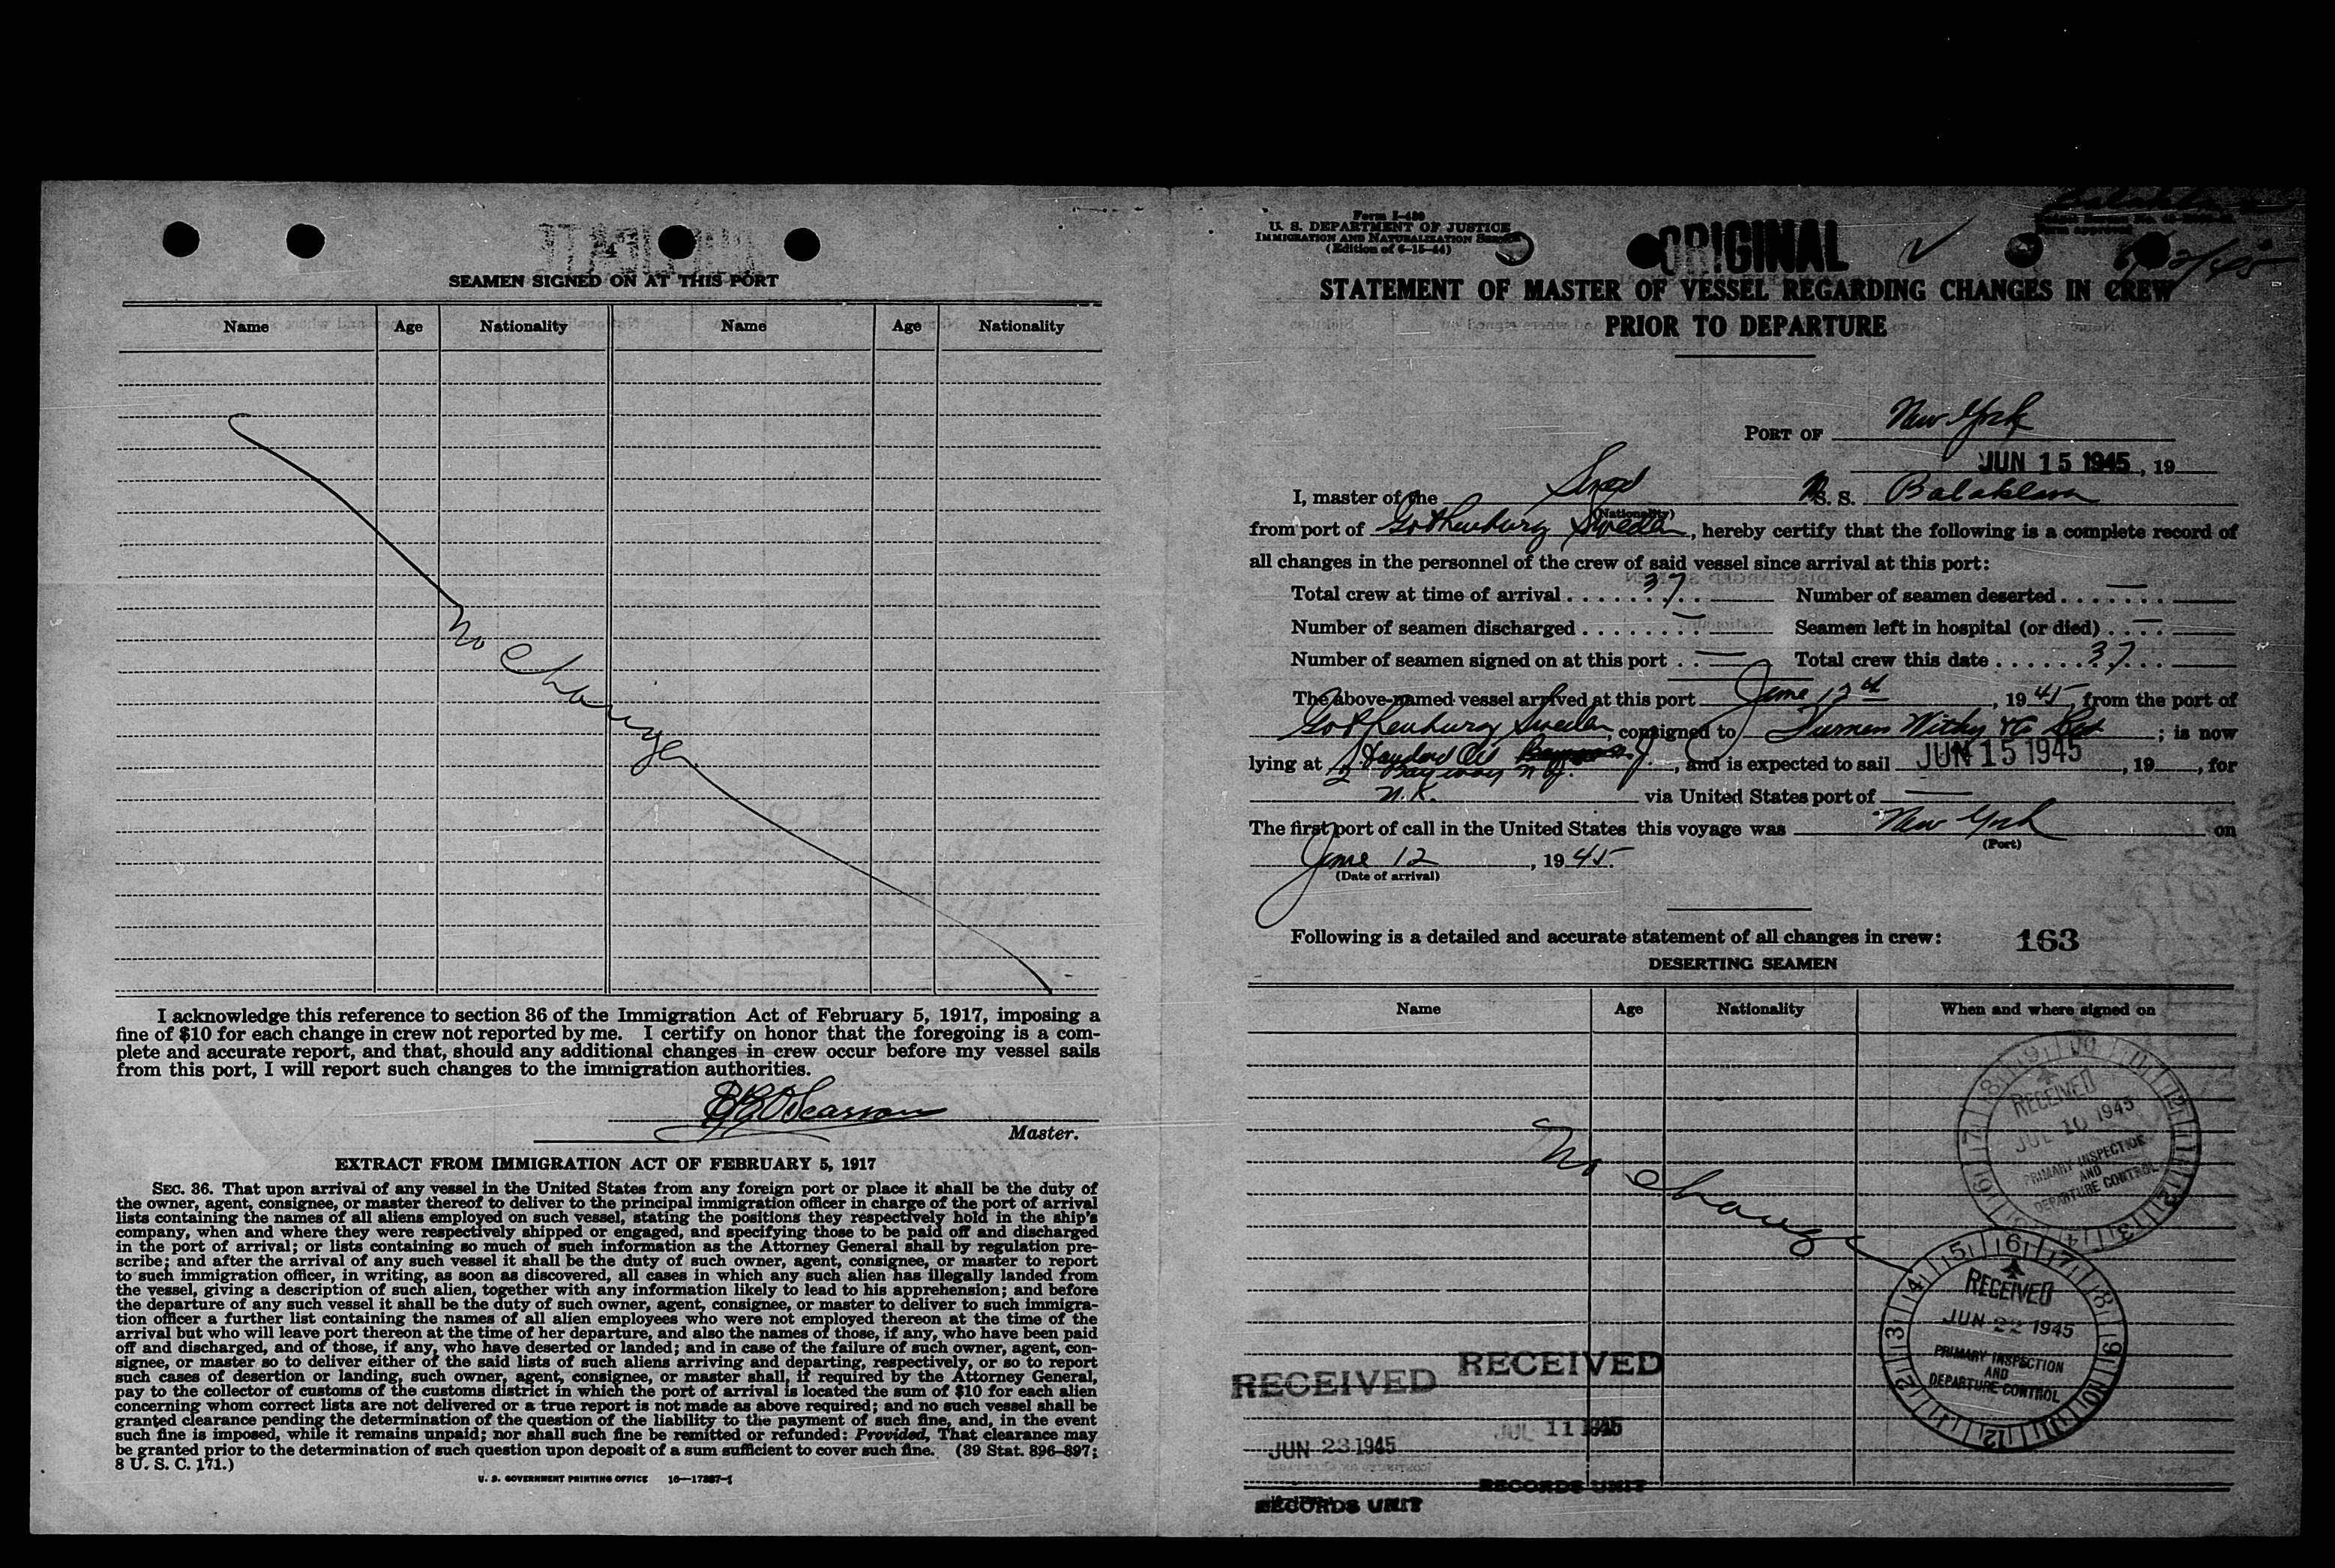 SEAMEN SIGNED ON AT THIS PORT
Name Age Nationality Name Age Nationality
No Change
I acknowledge this reference to section 36 of the Immigration Act of February 5, 1917, imposing a
fine of $10 for each change in crew not reported by me. I certify on honor that the foregoing is a com-
plete and accurate report, and that, should any additional changes in crew occur before my vessel sails
from this port, I will report such changes to the immigration authorities.
Master.
EXTRACT FROM IMMIGRATION ACT OF FEBRUARY 5, 1917
SEC. 36. That upon arrival of any vessel in the United States from any foreign port or place it shall be the duty of
the owner, agent, consignee, or master thereof to deliver to the principal immigration officer in charge of the port of arrival
lists containing the names of all aliens employed on such vessel, stating the positions they respectively hold in the ship's
company, when and where they were respectively shipped or engaged, and specifying those to be paid off and discharged
in the port of arrival; or lists containing so much of such information as the Attorney General shall by regulation pre-
scribe; and after the arrival of any such vessel it shall be the duty of such owner, agent, consignee, or master to report
to such immigration officer, in writing, as soon as discovered, all cases in which any such alien has illegally landed from
the vessel, giving a description of such alien, together with any information likely to lead to his apprehension; and before
the departure of any such vessel it shall be the duty of such owner, agent, consignee, or master to deliver to such immigra-
tion officer a further list containing the names of all alien employees who were not employed thereon at the time of the
arrival but who will leave port thereon at the time of her departure, and also the names of those, if any, who have been paid
off and discharged, and of those, if any, who have deserted or landed; and in case of the failure of such owner, agent, con-
signee, or master so to deliver either of the said lists of such aliens arriving and departing, respectively, or so to report
such cases of desertion or landing, such owner, agent, consignee, or master shall, if required by the Attorney General,
pay to the collector of customs of the customs district in which the port of arrival is located the sum of $10 for each alien
concerning whom correct lists are not delivered or a true report is not made as above required; and no such vessel shall be
granted clearance pending the determination of the question of the liability to the payment of such fine, and, in the event
such fine is imposed, while it remains unpaid; nor shall such fine be remitted or refunded: Provided, That clearance may
be granted prior to the determination of such question upon deposit of a sum sufficient to cover such fine. (39 Stat. 896-897;
8 U. S. C. 171.)
U. S. GOVERNMENT PRINTING OFFICE 16—17387-1
Form I-489
U. S. DEPARTMENT OF JUSTICE
IMMIGRATION AND NATURALIZATION SERVICE
(Edition of 6-15-44)
ORIGINAL
STATEMENT OF MASTER OF VESSEL REGARDING CHANGES IN CREW
PRIOR TO DEPARTURE
PORT OF New York
JUN 15 1945, 19
I, master of the Swed M. S. S. Balaklava
(Nationality)
from port of Gothenburg Sweden, hereby certify that the following is a complete record of
all changes in the personnel of the crew of said vessel since arrival at this port:
Total crew at time of arrival 37 Number of seamen deserted —
Number of seamen discharged — Seamen left in hospital (or died) —
Number of seamen signed on at this port — Total crew this date 37
The above-named vessel arrived at this port June 12th, 1945, from the port of
Gothenburg Sweden, consigned to Furness Withy & Co Ltd; is now
lying at Standard Oil, and is expected to sail JUN 15 1945, 19, for
2 Bayway N.J.
N.K. via United States port of —
The first port of call in the United States this voyage was New York on
(Port)
June 12, 1945
(Date of arrival)
Following is a detailed and accurate statement of all changes in crew: 163
DESERTING SEAMEN
Name Age Nationality When and where signed on
No Change
RECEIVED
JUL 10 1945
PRIMARY INSPECTION
AND
DEPARTURE CONTROL
RECEIVED
JUN 22 1945
PRIMARY INSPECTION
AND
DEPARTURE CONTROL
RECEIVED
JUN 23 1945
RECORDS UNIT
RECEIVED
JUL 11 1945
RECORDS UNIT